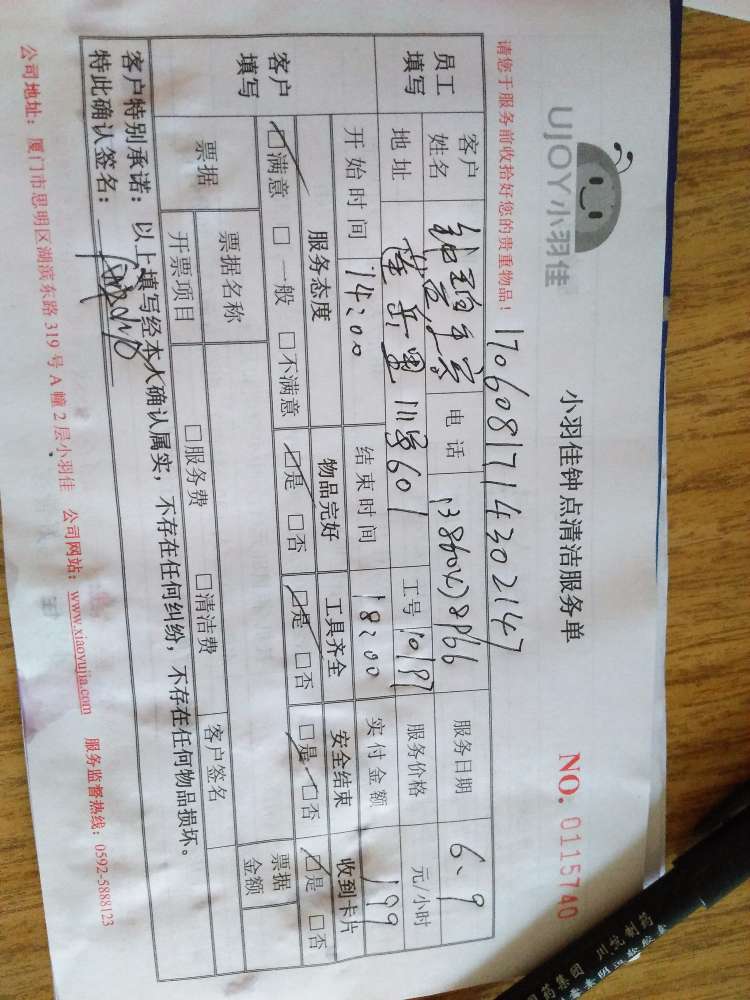 UJOY小羽佳
小羽佳钟点清洁服务单
NO. 0115740
请您于服务前收拾好您的贵重物品！
1706081714302147
员工填写
客户姓名
电话
服务日期 6、9
地址
601
工号 10197
服务价格 元/小时
开始时间 14:00 结束时间 18:00 实付金额 199
客户填写
服务态度 物品完好 工具齐全 安全结束 收到卡片
☑满意 □一般 □不满意 ☑是 □否 ☑是 □否 ☑是 □否 ☑是 □否
票据
票据名称 □服务费 □清洁费 票据金额
开票项目 客户签名
客户特别承诺：以上填写经本人确认属实，不存在任何纠纷，不存在任何物品损坏。
特此确认签名：
公司地址：厦门市思明区湖滨东路 319 号 A 幢 2 层小羽佳 公司网站：www.xiaoyujia.com 服务监督热线：0592-5888123
药集团 川悦制药